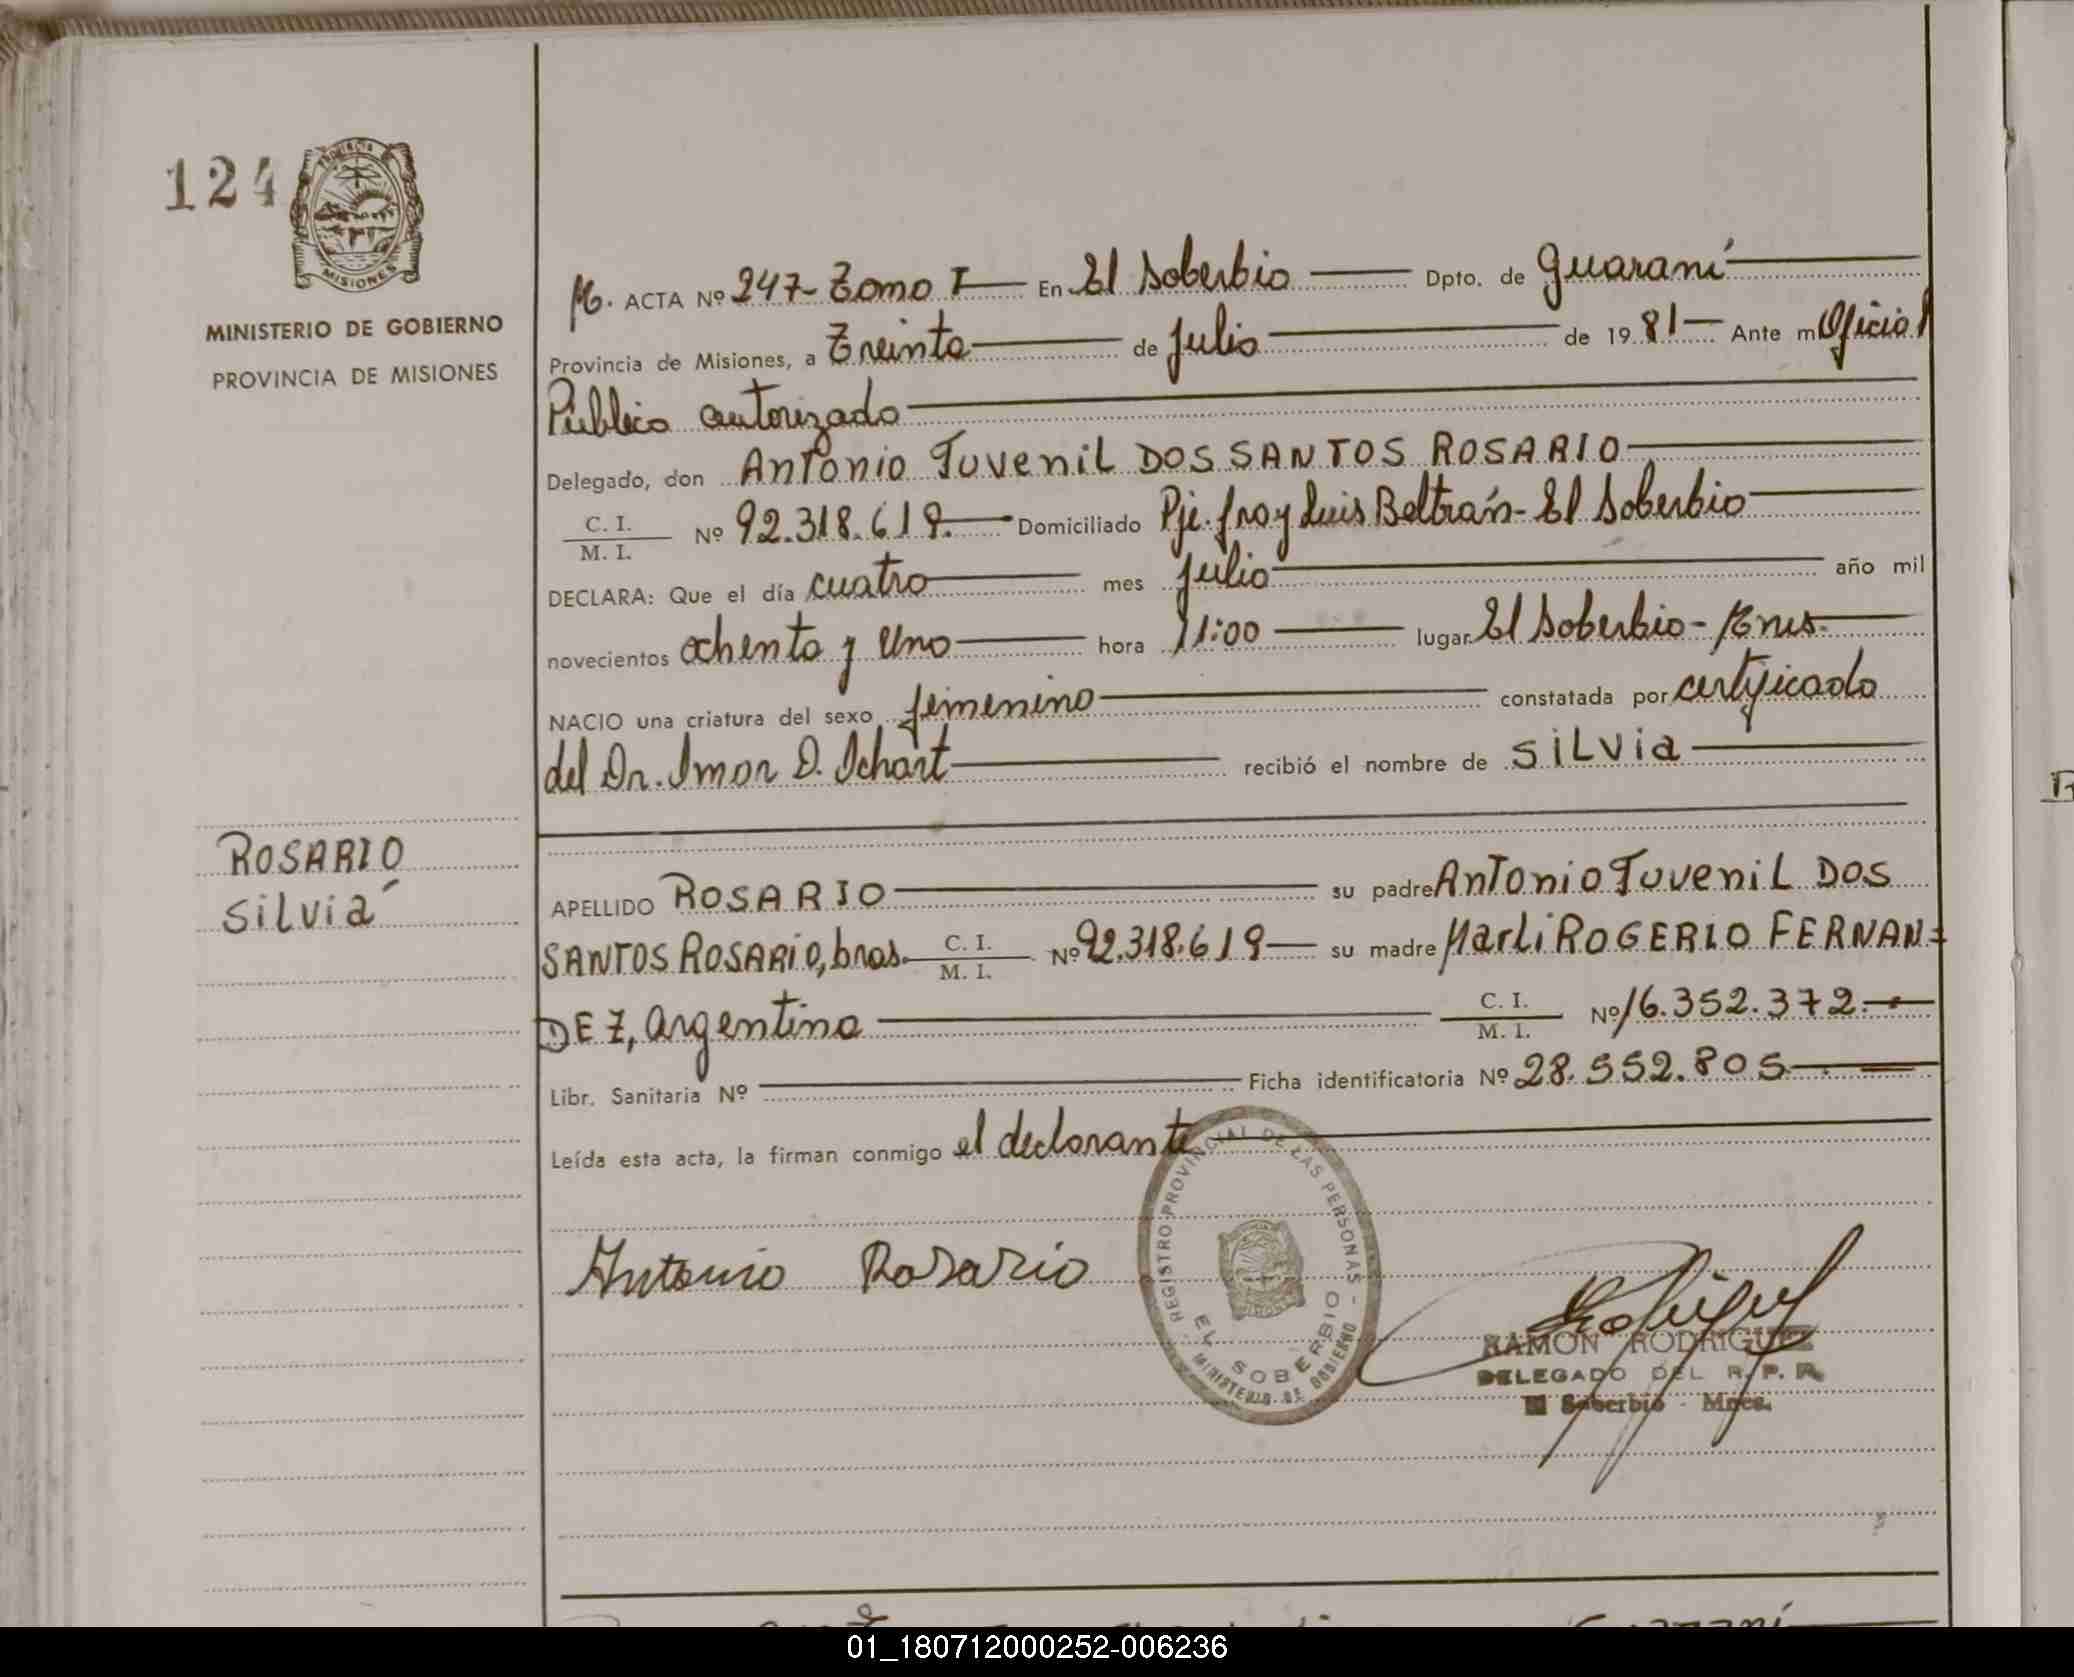 124
PROVINCIA
MISIONES
MINISTERIO DE GOBIERNO
PROVINCIA DE MISIONES
ACTA Nº 247- Tomo I En El Soberbio Dpto. de Guaraní
Provincia de Misiones, a Treinta de Julio de 1981 Ante m Oficial
Público autorizado
Delegado, don Antonio Juvenil DOS SANTOS ROSARIO
C. I.
M. I. Nº 92.318.619. Domiciliado Pje. fray Luis Beltrán- El Soberbio
DECLARA: Que el día cuatro mes Julio año mil
novecientos ochenta y uno hora 11:00 lugar El Soberbio- Mnes.
NACIO una criatura del sexo femenino constatada por certificado
del Dr. Imar D. Ichart recibió el nombre de Silvia
ROSARIO
Silvia
APELLIDO ROSARIO su padre Antonio Juvenil DOS
SANTOS ROSARIO, bras. C. I.
M. I. Nº 92.318.619 su madre Marli ROGERIO FERNAN=
DEZ, argentina C. I.
M. I. Nº 16.352.372.
Libr. Sanitaria Nº Ficha identificatoria Nº 28.552.805
Leída esta acta, la firman conmigo el declarante
Antonio Rosario
REGISTRO PROVINCIAL DE LAS PERSONAS -
EL SOBERBIO
MINISTERIO DE GOBIERNO
RAMON RODRIGUEZ
DELEGADO DEL R. P. P.
El Soberbio - Mnes.
01_180712000252-006236